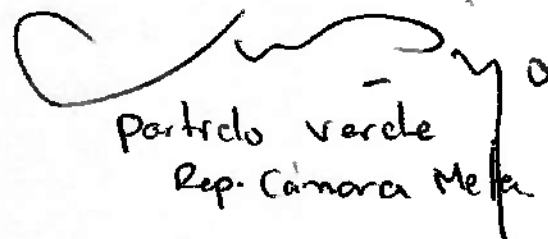 Partido verde
Rep. Cámara Meta